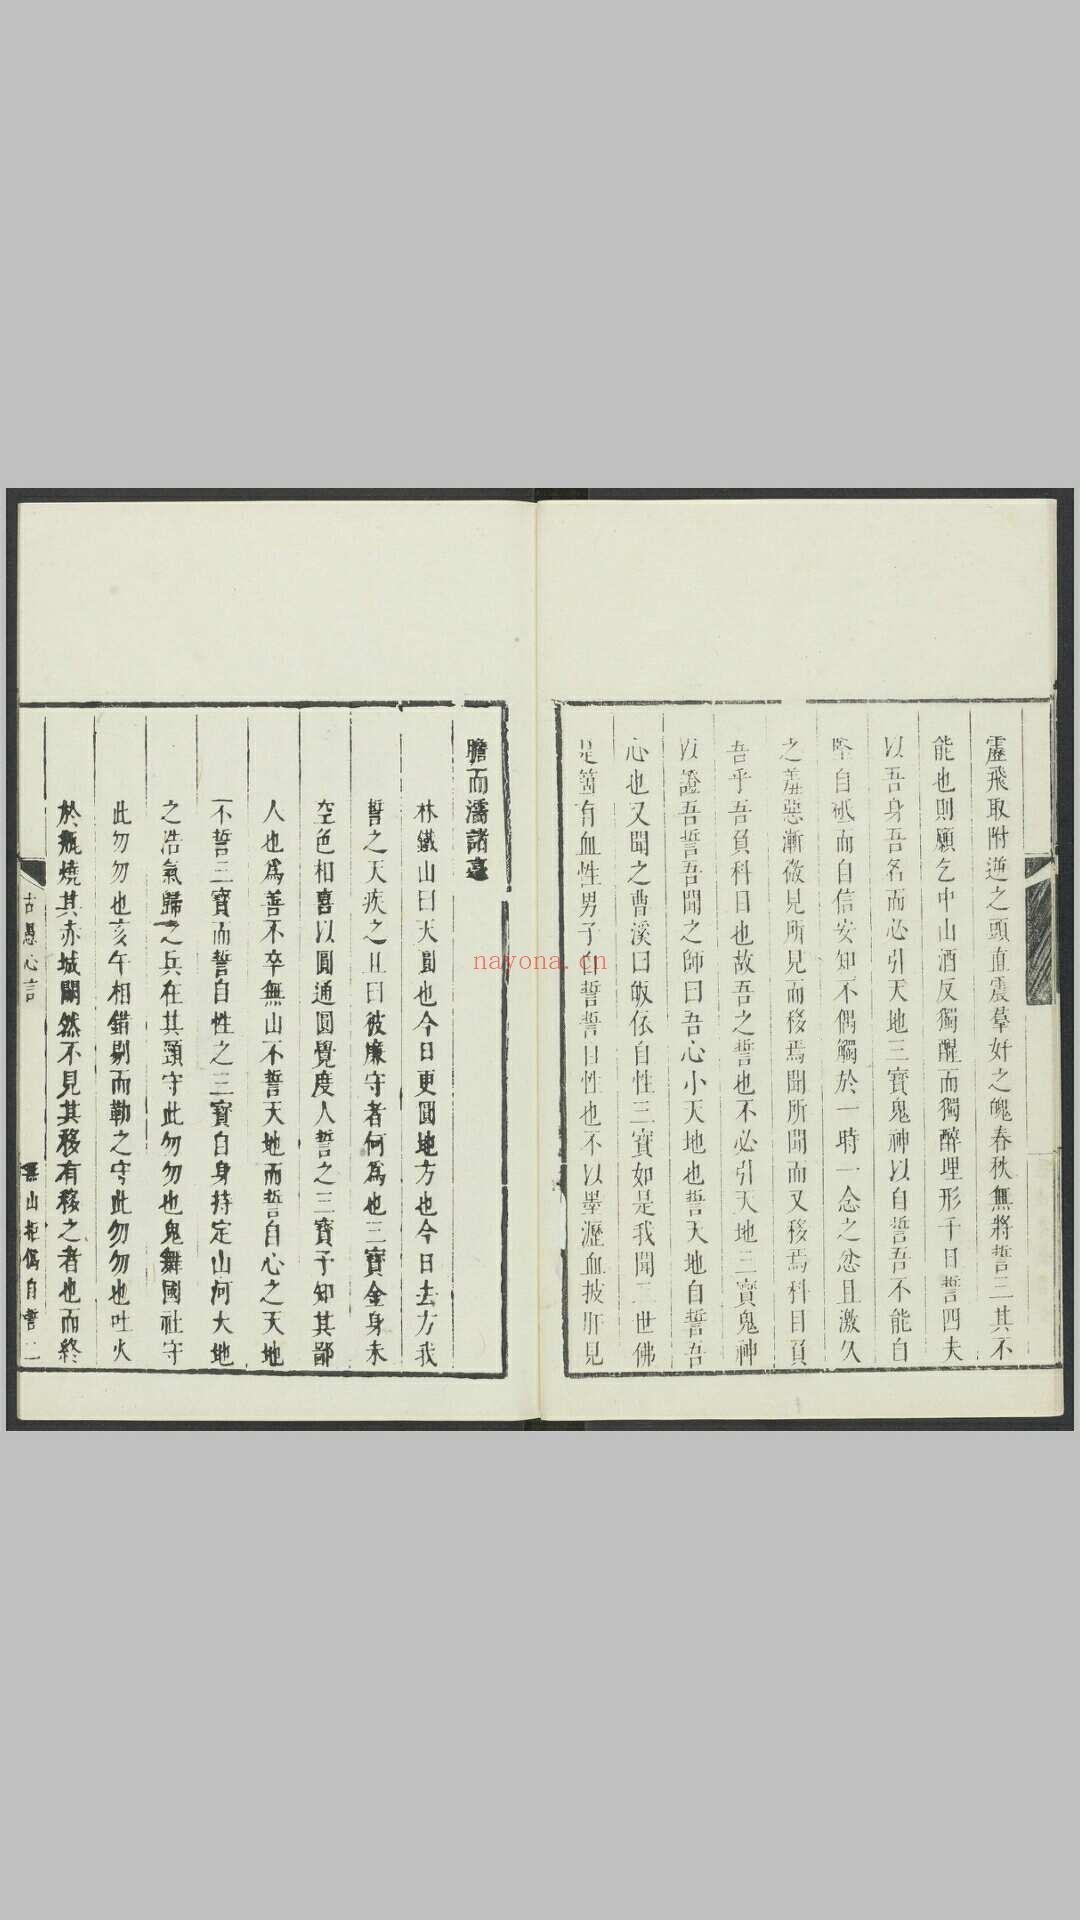 虛飛取附逆之頭直震羣奸之魄春秋無將誓三其不
能也則願乞中山酒反獨醒而獨醉埋形千日誓四夫
以吾身吾名而必引天地三寶鬼神以自誓吾不能自
堅自砥而自信安知不偶觸於一時一念之忿且激久
之羞惡漸微見所見而移焉聞所聞而又移焉科目負
吾乎吾負科目也故吾之誓也不必引天地三寶鬼神
以證吾誓吾聞之師曰吾心小天地也誓天地自誓吾
心也又聞之曹溪曰皈依自性三寶如是我聞三世佛
是箇有血性男子自誓誓自性也不以墨瀝血披肝見
膽而濡諸毫
林鐵山曰天圓也今日更圓地方也今日去方我
誓之天疾之且曰彼廉守者何為也三寶金身未
空色相喜以圓通圓覺度人誓之三寶予知其鄙
人也爲善不卒無山不誓天地而誓自心之天地
不誓三寶而誓自性之三寶自身持定山河大地
之浩氣歸之兵在其頸守此勿勿也鬼舞國社守
此勿勿也亥午相錯剔而勒之守此勿勿也吐火
於瓶燒其赤城闃然不見其移有移之者也而終
古愚心言
無山拒僞自誓 二
nayona.cn